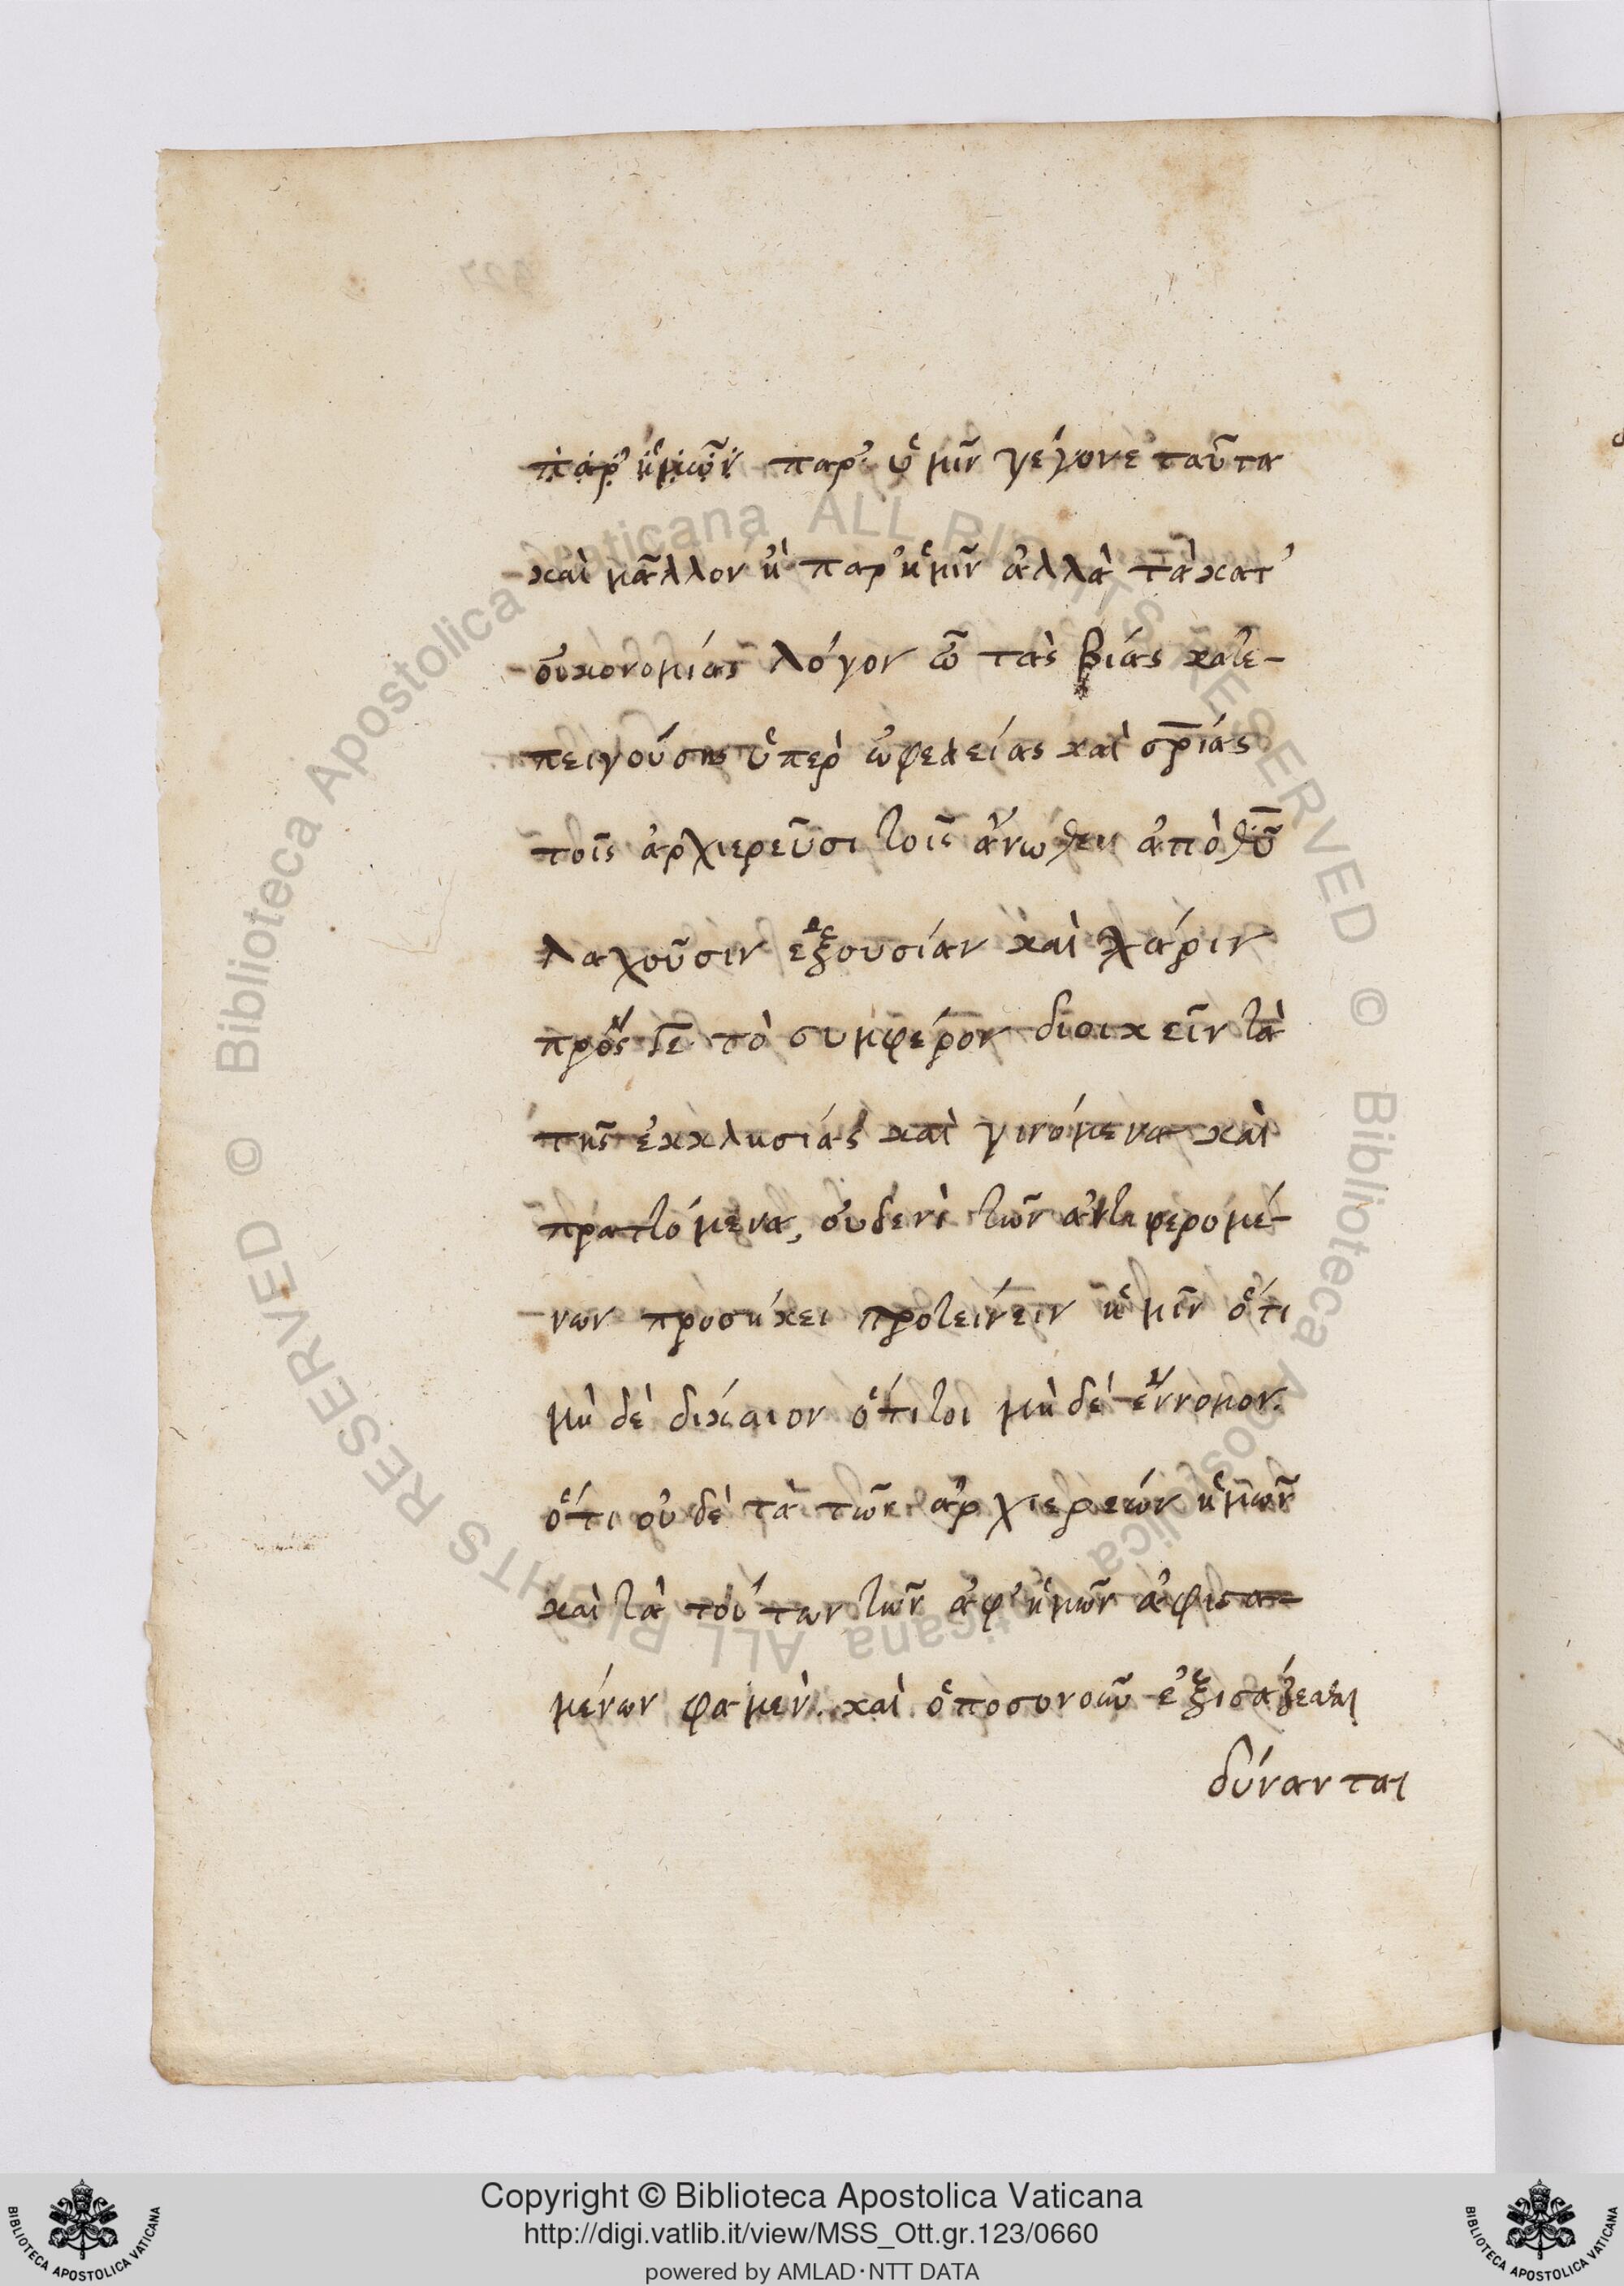 παρ' ἡμῶν παρ' ὑμῖν γέγονε ταῦτα
καὶ μᾶλλον ἢ παρ' ἡμῖν ἀλλὰ τὰ κατ'
οἰκονομίας λόγον ὦ τὰς βίας κατε-
πειγούσης ὑπὲρ ὠφελείας καὶ σρίας
τοῖς ἀρχιερεῦσι τοῖς ἄνωθεν ἀπὸ θυ
λαχοῦσιν ἐξουσίαν καὶ χάριν
πρὸς τὸ συμφέρον διοικεῖν τὰ
τῆς ἐκκλησίας καὶ γινόμενα καὶ
πραττόμενα, οὐδενὶ τῶν ἀντιφερομέ-
νων προσήκει προτείνειν ἡμῖν ὅτι
μὴ δὲ δίκαιον ὅτιτοι μὴ δὲ ἔννομον.
ὅτι οὐδὲ τὰ τῶν ἀρχιερέων ἡμῶν
καὶ τὰ τούτων τῶν ἀφ' ἡμῶν ἀφιστα-
μένων φαμέν. καὶ ὁποσονοῦν ἐξισάζεσθαι
δύνανται
Copyright © Biblioteca Apostolica Vaticana
http://digi.vatlib.it/view/MSS_Ott.gr.123/0660
powered by AMLAD·NTT DATA
BIBLIOTECA APOSTOLICA VATICANA
BIBLIOTECA APOSTOLICA VATICANA
© Biblioteca Apostolica Vaticana ALL RIGHTS RESERVED
© Biblioteca Apostolica Vaticana ALL RIGHTS RESERVED